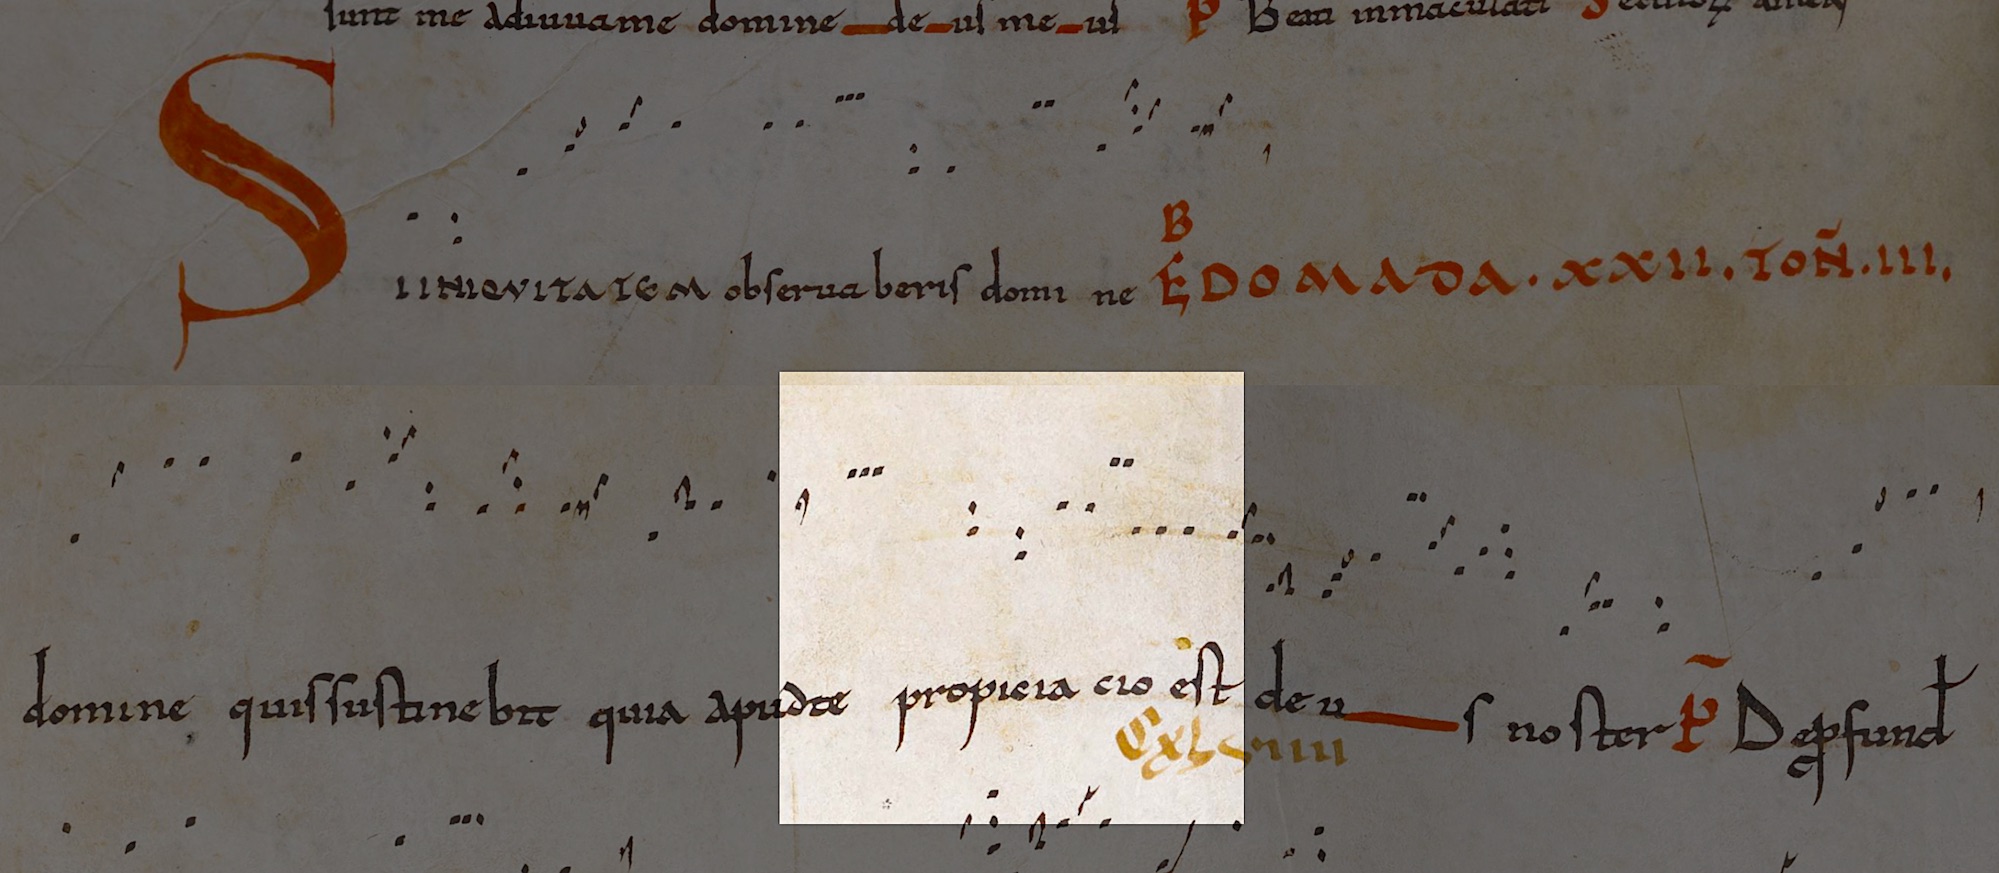 sunt me Adiuuame domine de us me us P Beati inmaculati Seculorum amen
S IINIQVITATEM observaberis domi ne EBDOMADA · XXII · TOÑ · III ·
domine quissustinebit quia Apudte propicia cio est deu s noster P̄ Deprfund
Cxlviiii